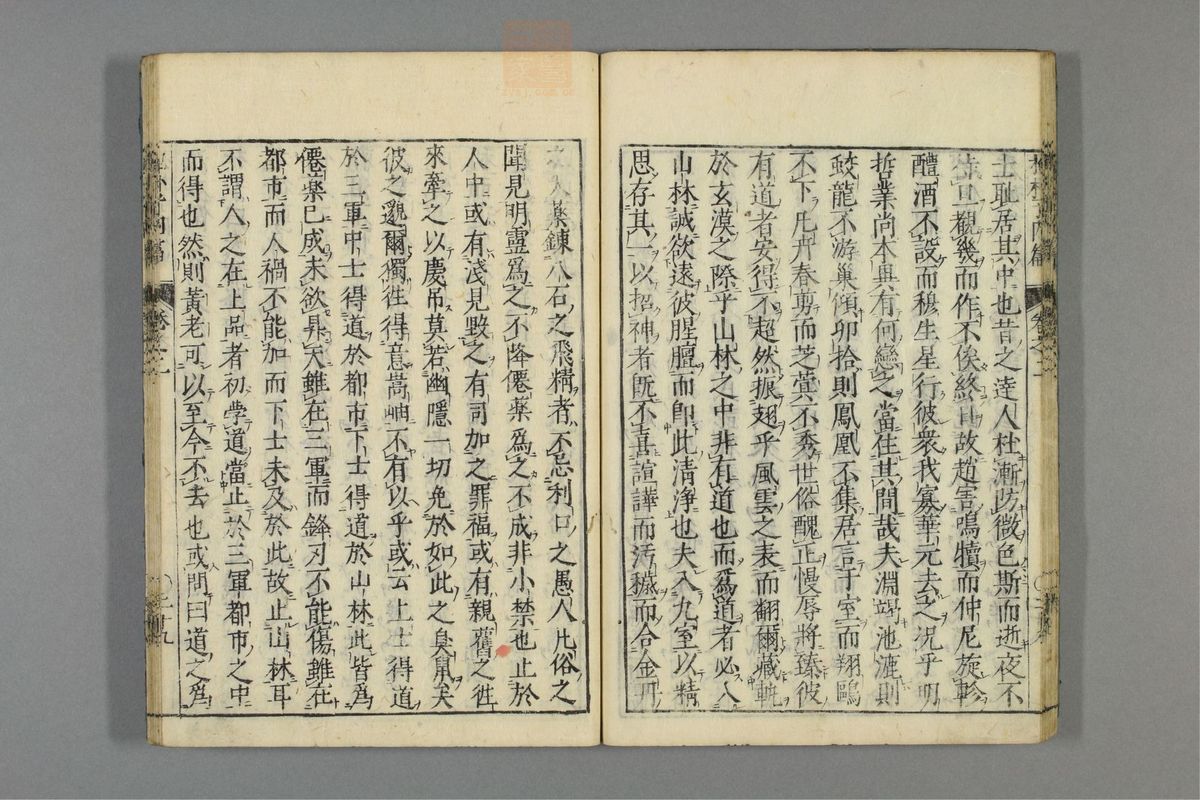 士耻居其中也昔之達人杜漸防微色斯而逝夜不
待旦觀幾而作不俟終日故趙害鳴犢而仲尼旋軫
醴酒不設而穆生星行彼衆我寡華元去之况乎明
哲業尚本異有何戀之當住其間哉夫淵竭池漉則
蛟龍不游巢傾卵拾則鳳凰不集居言于室而翔鷗
不下凡卉春剪而芝蓂不秀世俗醜正慢辱將臻彼
有道者安得不超然振翅乎風雲之表而翻爾藏軌
於玄漠之際乎山林之中非有道也而爲道者必入
山林誠欲遠彼腥膻而卽此清淨也夫入九室以精
思存其一以招神者旣不喜諠譁而汚穢而合金丹
之大藥鍊八石之飛精者不忌利口之愚人凡俗之
聞見明靈爲之不降僊藥爲之不成非小禁也止於
人中或有淺見毀之有司加之罪福或有親舊之徃
來牽之以慶吊莫若幽隱一切免於如此之臭鼠矣
彼之邈爾獨徃得意嵩岫不有以乎或云上士得道
於三軍中士得道於都市下士得道於山林此皆爲
僊藥已成未欲昇天雖在三軍而鋒刃不能傷雖在
都市而人禍不能加而下士未及於此故止山林耳
不謂人之在上品者初学道當止於三軍都市之中
而得也然則黃老可以至今不去也或問曰道之爲